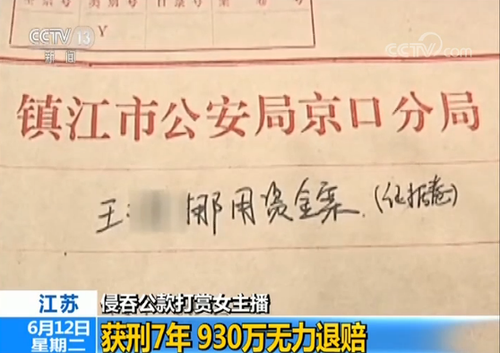 CCTV 13
新闻
CCTV.com
Y
镇江市公安局京口分局
王 挪用资金案(证据卷)
江苏
侵吞公款打赏女主播
6月12日
星期二
获刑7年 930万无力退赔